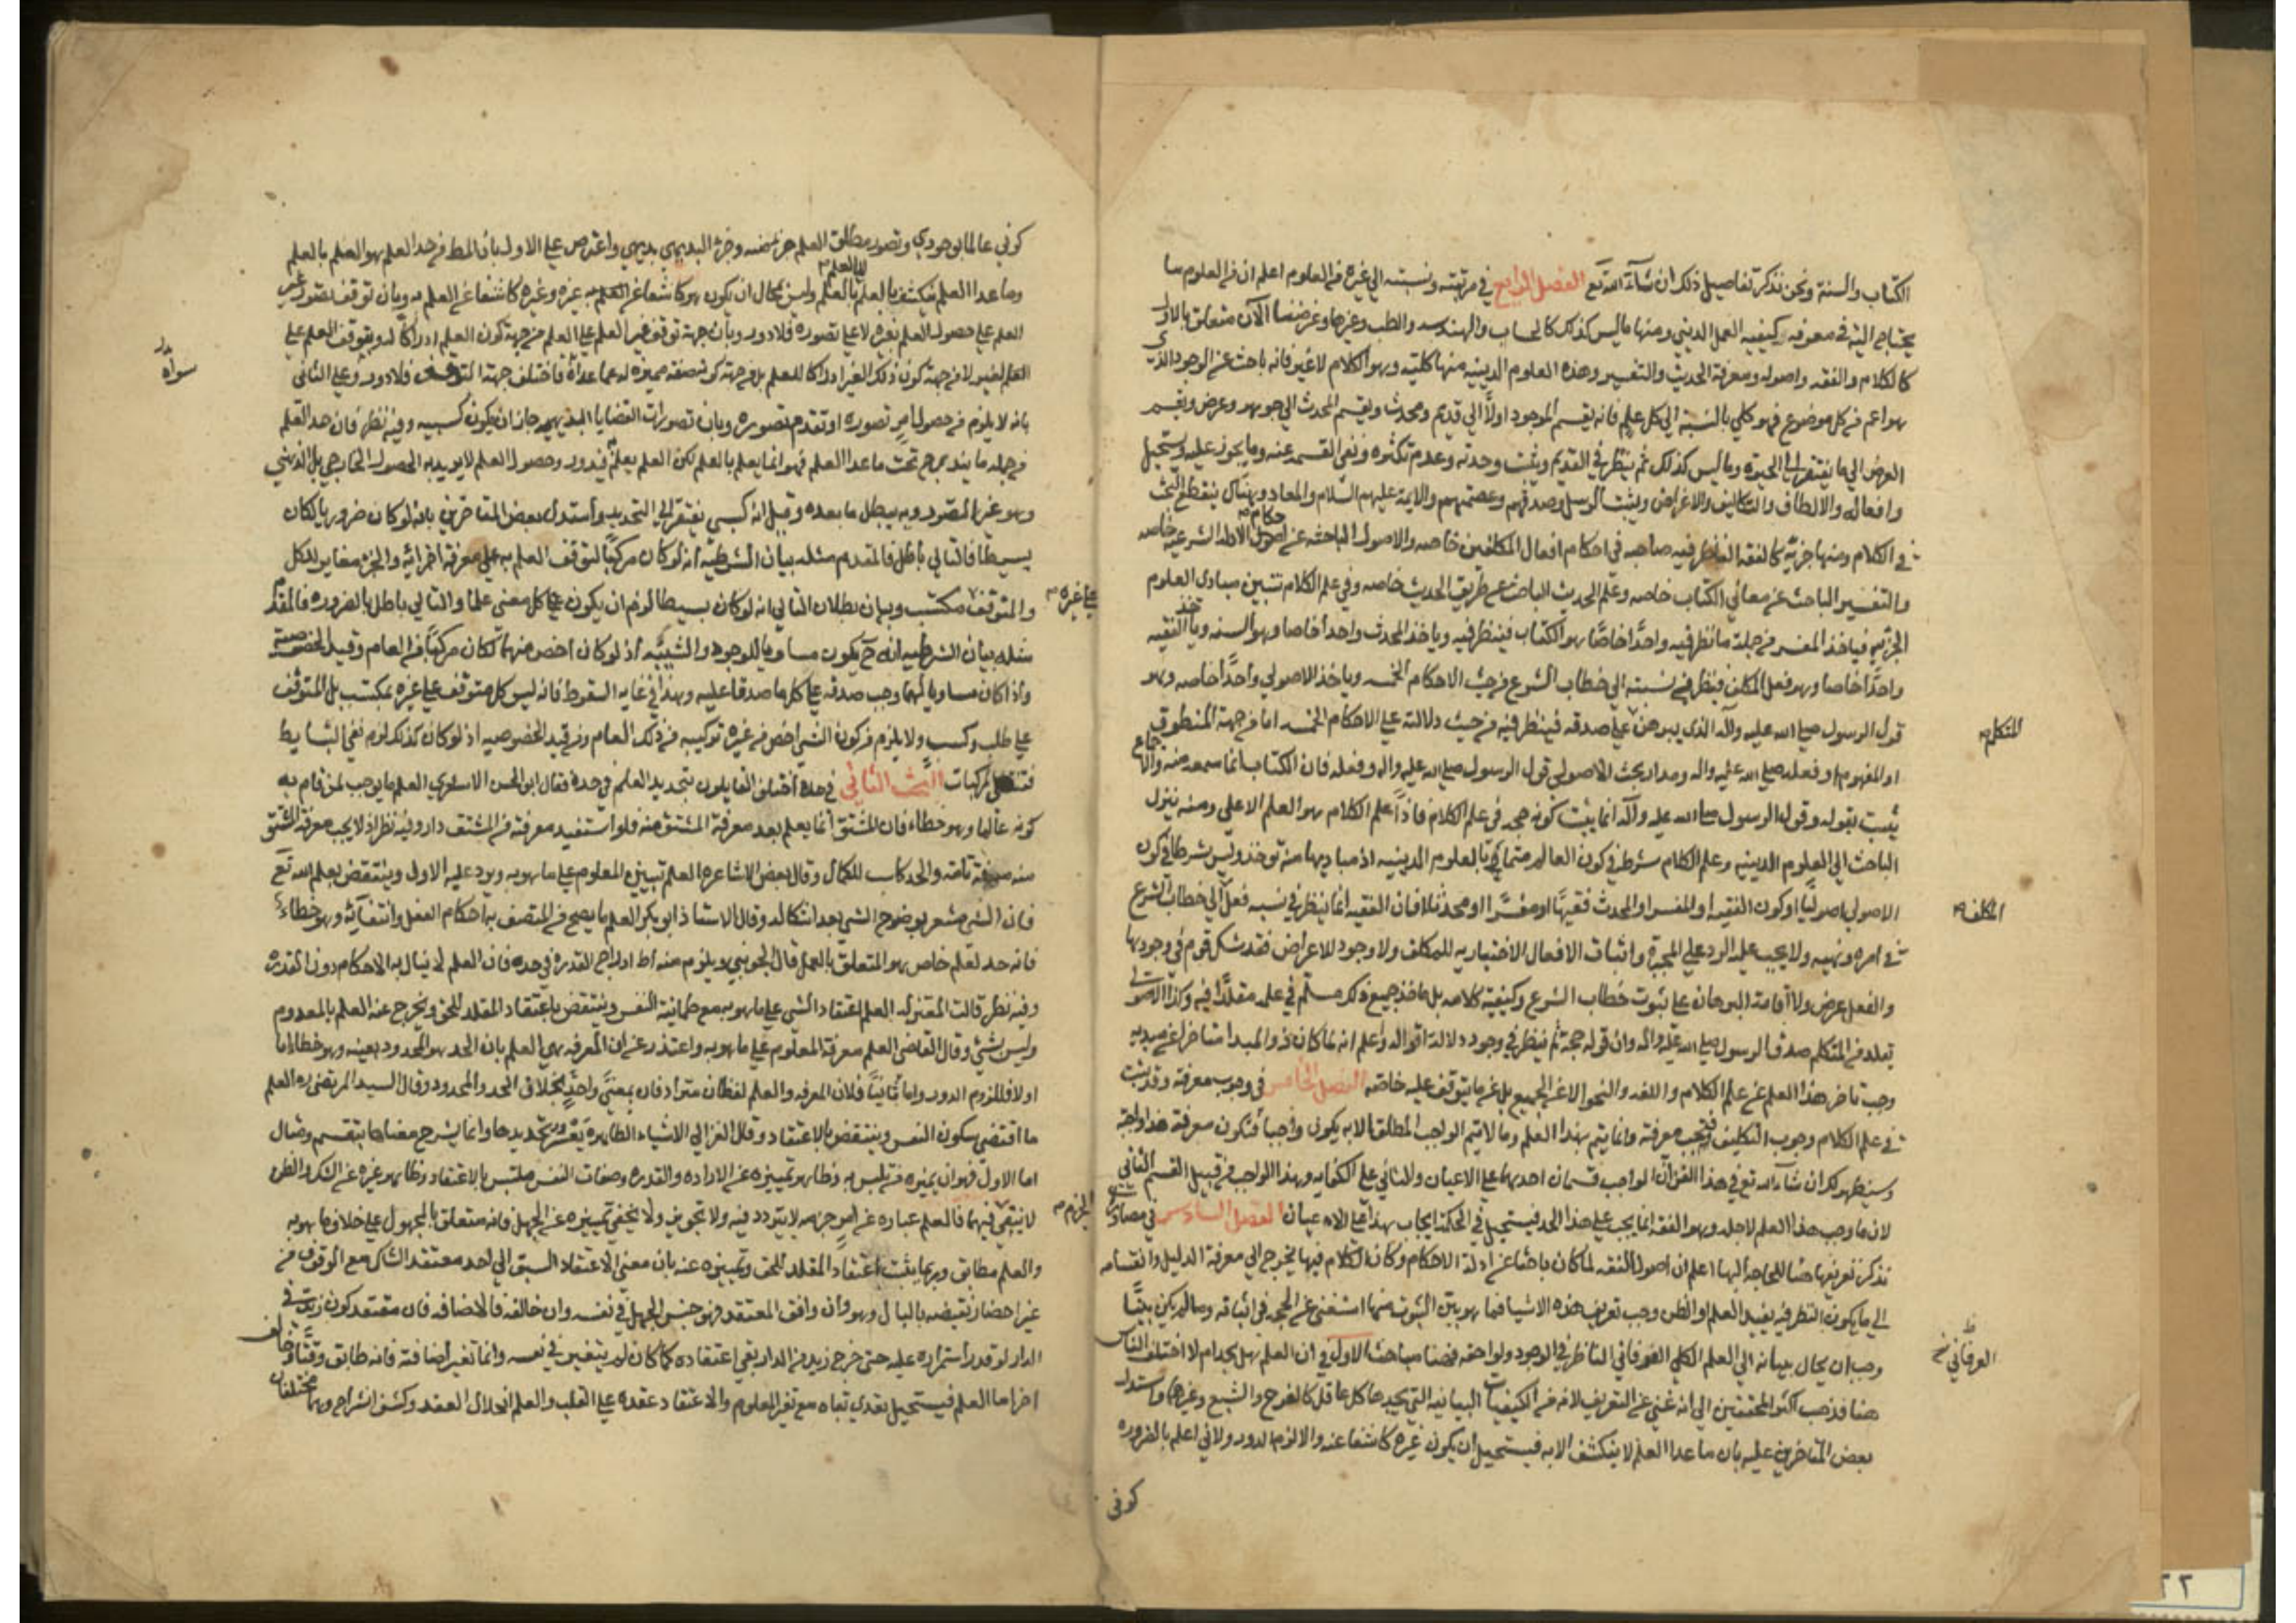 الكتاب والسنة ونحن نذكر تفاصيل ذلك ان شآء الله تع الفصل الرابع في مرتبته ونسبته الي غيره من العلوم اعلم ان من العلوم ما
يحتاج اليه في معرفة كيفيه العمل الديني ومنها ما ليس كذلك كالحساب والهندسه والطب وغيرها وغرضنا الآن متعلق بالاول
كالكلام والفقه واصوله ومعرفة الحديث والتفسير وهذه العلوم الدينيه منها كليته وهو الكلام لا غير فانه باحث عن الوجود الذي
هو اعم من كل موضوع فهو كلي بالنسبة الي كل علم فانه يقسم الموجود اولاً الي قديم ومحدث ويقسم المحدث الي جوهر وعرض ويقسم
العرض الي ما يفتقر الي الحيوة وما ليس كذلك ثم ينظر في القديم ويثبت وحدته وعدم تكثره ونفي القسمه عنه وما يجوز عليه ويستحيل
وافعاله والالطاف والتكاليف والاغراض ويثبت الرسل وصدقهم وعصمتهم والايمة عليهم السلام والمعاد وهناك ينقطع البحث
في الكلام ومنها جزئية كالفقه الناظر فيه صاحبه في احكام افعال المكلفين خاصه والاصول الباحثه عن احكام الادله الشرعيه خاصه
والتفسير الباحث عن معاني الكتاب خاصه وعلم الحديث الباحث عن طريق الحديث خاصه وفي علم الكلام تتبين مبادي العلوم
الجزئيه فياخذ المفسر من جملة ما نظر فيه واحداً خاصاً هو الكتاب فينظر فيه وياخذ المحدث واحداً خاصا وهو السنه وياخذ الفقيه
واحداً خاصا وهو فعل المكلف فينظر في نسبته الي خطاب الشرع من حيث الاحكام الخمسه وياخذ الاصولي واحداً خاصه وهو
قول الرسول صلى الله عليه وآله الذي يبرهن علي صدقه فينظر فيه من حيث دلالته علي الاحكام الخمسه اما من جهة المنطوق
المتكلم
او المفهوم او فعله صلى الله عليه واله ومدار بحث الاصولي قول الرسول صلى الله عليه واله وفعله فان الكتاب انما سمعه منه والاجماع
يثبت بقوله وقول الرسول صلى الله عليه وآله انما يثبت كونه حجه في علم الكلام فاذاً علم الكلام هو العلم الاعلي ومنه ينزل
الباحث الي العلوم الدينيه وعلم الكلام شرط في كون العالم بالعلوم الدينيه اذ مباديها منه توخذ وليس شرطا في كون
الاصولي اصولياً او كون الفقيه او المفسر او المحدث فقيهاً او مفسراً او محدثا فان الفقيه انما ينظر في نسبه فعل الي خطاب الشرع
المكلف
في امره ونهيه ولا يجب عليه الرد علي المجبرة واثبات الافعال الاختياريه للمكلف ولا وجود للاعراض فقد شك قوم في وجودها
والفعل عرض ولا اقامة البرهان علي ثبوت خطاب الشرع وكيفية كلامه بل ياخذ جميع ذلك مسلم في علمه مقلداً فيه وكذا الاصولي
يقلد من المتكلم صدق الرسول صلى الله عليه واله وان قوله حجه ثم ينظر في وجوه دلالة اقواله واعلم انه لما كان ذو المبدا متاخرا عن مبديه
وجب تاخر هذا العلم عن علم الكلام واللغه والنحو لا عن الجميع بل عن ما يتوقف عليه خاصه الفصل الخامس في وجوب معرفة وقد ثبت
في علم الكلام وجوب التكليف فتجب معرفة وانما يتم بهذا العلم وما لا يتم الواجب المطلق الا به يكون واجباً فتكون معرفة هذا واجبة
وسيظهر لك ان شاء الله تع في هذا الفن ان الواجب قسمان احدهما علي الاعيان والثاني علي الكفايه وهذا الواجب من قبيل القسم الثاني
لان ما وجب هذا العلم لاجله وهو الفقه انما يجب علي هذا الحد فيستحيل في الحكمة ايجاب هذا علي الاعيان الفصل السادس في مصادر
نذكر تعريفها هنا للحاجه اليها اعلم ان اصول الفقه لما كان باحثا عن ادلة الاحكام وكان الكلام فيها يخرج الي معرفة الدليل وانقسامه
الي ما يكون النظر فيه يفيد العلم او الظن وجب تعريف هذه الاشيا فما هو بين الثبوت منها استغني عن الحجه في اثباته وما لم يكن بيناً
وجب ان يحال ببيانه الي العلم الكلي الفوقاني الناظر في الوجود ولواحقه فهنا مباحث الاول في ان العلم هل يحد ام لا اختلف الناس
العرفاني
هنا فذهب اكثر المحققين الي انه غني عن التعريف لانه من الكيفيات البيانيه التي يجدها كل عاقل كالفرح والشبع وغيرها واستدل
بعض المتاخرين عليه بان ما عدا العلم لا ينكشف الا به فيستحيل ان يكون غيره كاشفا عنه والا لزم الدور ولاني اعلم بالضروره
كوني
كوني عالما بوجودي وتصور مطلق العلم جزء منه وجزء البديهي بديهي واعترض علي الاول بان المط من حد العلم هو العلم بالعلم
وما عدا العلم ينكشف بالعلم لا بالعلم بالعلم وليس بمحال ان يكون هو كاشفا عن العلم به غيره وغيره كاشفا عن العلم به وبان توقف تصور غير
العلم علي حصول العلم بغيره لا علي تصوره فلا دور وبان جهة توقف غير العلم علي العلم من جهة كون العلم ادراكا له وتوقف العلم علي
الغير لا من جهة كون ذلك الغير ادراكا للعلم بل من جهة كونه صفة مميزه له عما عداه فاختلف جهتا التوقف فلا دور وعلي الثاني
سواه
بانه لا يلزم من حصول امر تصوره او تقدم تصوره وبان تصورات القضايا البديهيه جاز ان يكون كسبيه وفيه نظر فان حد العلم
من جمله ما يندرج تحت ما عدا العلم فهو انما يعلم بالعلم لكن العلم يعلم فيدور وحصول العلم لا يريد به الحصول الخارجي بل الذهني
وهو عين التصور وبه يبطل ما بعده وقيل انه كسبي يفتقر الي التحديد واستدل بعض المتاخرين بانه لو كان ضروريا لكان
بسيطا فالتالي باطل فالمقدم مثله بيان الشرطيه انه لو كان مركباً لتوقف العلم به علي معرفة اجزائه والجزء مغاير للكل
والمتوقف مكتسب وبيان بطلان التالي انه لو كان بسيطا لزم ان يكون كل معني علما والتالي باطل بالضروره فالمقدم
علي غيره
مثله بيان الشرطيه انه ح يكون مساويا للوجود والشيئيه اذ لو كان اخص منهما لكان مركباً من العام وقيد الخصوصية
واذا كان مساويا لهما وجب صدقه علي كل ما صدقا عليه وهذا في غايه السقوط فانه ليس كل متوقف علي غيره بمكتسب بل المتوقف
علي طلب وكسب ولا يلزم من كون الشي اخص من غيره تركيبه من ذلك العام ومن قيد الخصوصيه اذ لو كان كذلك لزم نفي البسايط
فتنتفي المركبات البحث الثاني في حده اختلف القايلون بتحديد العلم في حده فقال ابو الحسن الاشعري العلم ما يوجب لمن قام به
كونه عالما وهو خطاء فان المشتق انما يعلم بعد معرفة المشتق منه فلو استفيد معرفته من المشتق دار وفيه نظر اذ لا يجب معرفة المشتق
منه معرفة تامة والحد كاسب للكمال وقال بعض الاشاعره العلم تبيين المعلوم علي ما هو به ويرد عليه الاول وينتقض بعلم الله تع
فان التبيين مشعر بوضوح الشي بعد اشكاله وقال الاستاذ ابو بكر العلم ما يصح من المتصف به احكام الفعل واتقانه وهو خطاء
فانه حد لعلم خاص هو المتعلق بالعمل قال الجويني ويلزم منه ادراج القدرة في حده فان العلم لا ينال به الاحكام دون القدره
وفيه نظر قالت المعتزله العلم اعتقاد الشي علي ما هو به مع طمانينة النفس وينتقض باعتقاد المقلد للحق ويخرج عنه العلم بالمعدوم
وليس بشيء وقال القاضي العلم معرفة المعلوم علي ما هو به واعتذر عن ان المعرفه هي العلم بان الحد هو المحدود بعينه وهو خطا اما
اولا فللزوم الدور واما ثانياً فلان المعرفه والعلم لفظان مترادفان بمعني واحد بخلاف الحد والمحدود وقال السيد المرتضي ره العلم
ما اقتضي سكون النفس وينتقض بالاعتقاد وقال الغزالي الاشياء الظاهره يعسر تحديدها وانما يشرح معناها بتقسيم ومثال
اما الاول فهو ان نميزه عما يلتبس به وظاهر تمييزه عن الاراده والقدره وصفات النفس ملتبس بالاعتقاد وظاهر غيره عن الشك والظن
لانتفاء الجزم فيهما فالعلم عباره عن امر جزم لا يتردد فيه ولا تجويز ولا يخفي تمييزه عن الجهل فانه متعلق بالمجهول علي خلاف ما هو به
الجزم
والعلم مطابق وربما يثبت اعتقاد المقلد للحق وتمييزه عنه بان معني الاعتقاد السبق الي احد معتقد الشاك مع الوقوف من
غير احضار نقيضه بالبال وهو وان وافق المعتقد فهو جنس الجهل في نفسه وان خالفه فالاضافه فان معتقد كون زيد في
الدار لو قدر استمراره عليه حتي خرج زيد من الدار بقي اعتقاده كما كان لم يتغير في نفسه وانما تغير اضافته فانه طابق وقتاً وخالف
اخر اما العلم فيستحيل تقدير بقاه مع تغير المعلوم والاعتقاد عقده علي القلب والعلم انحلال العقد وكشف انشراح وهما مختلفان